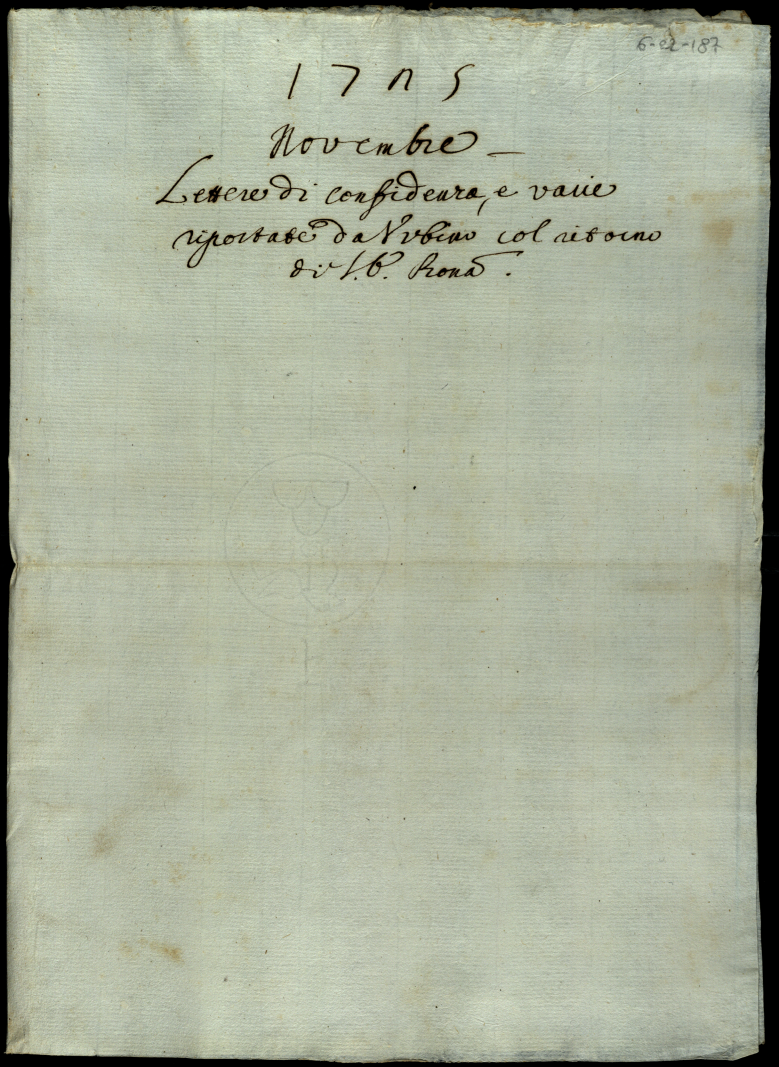 6-22-187
17
Novembre
Lettere di confidenza, e varie
riportate da Urbino col ritorno
di Roma.